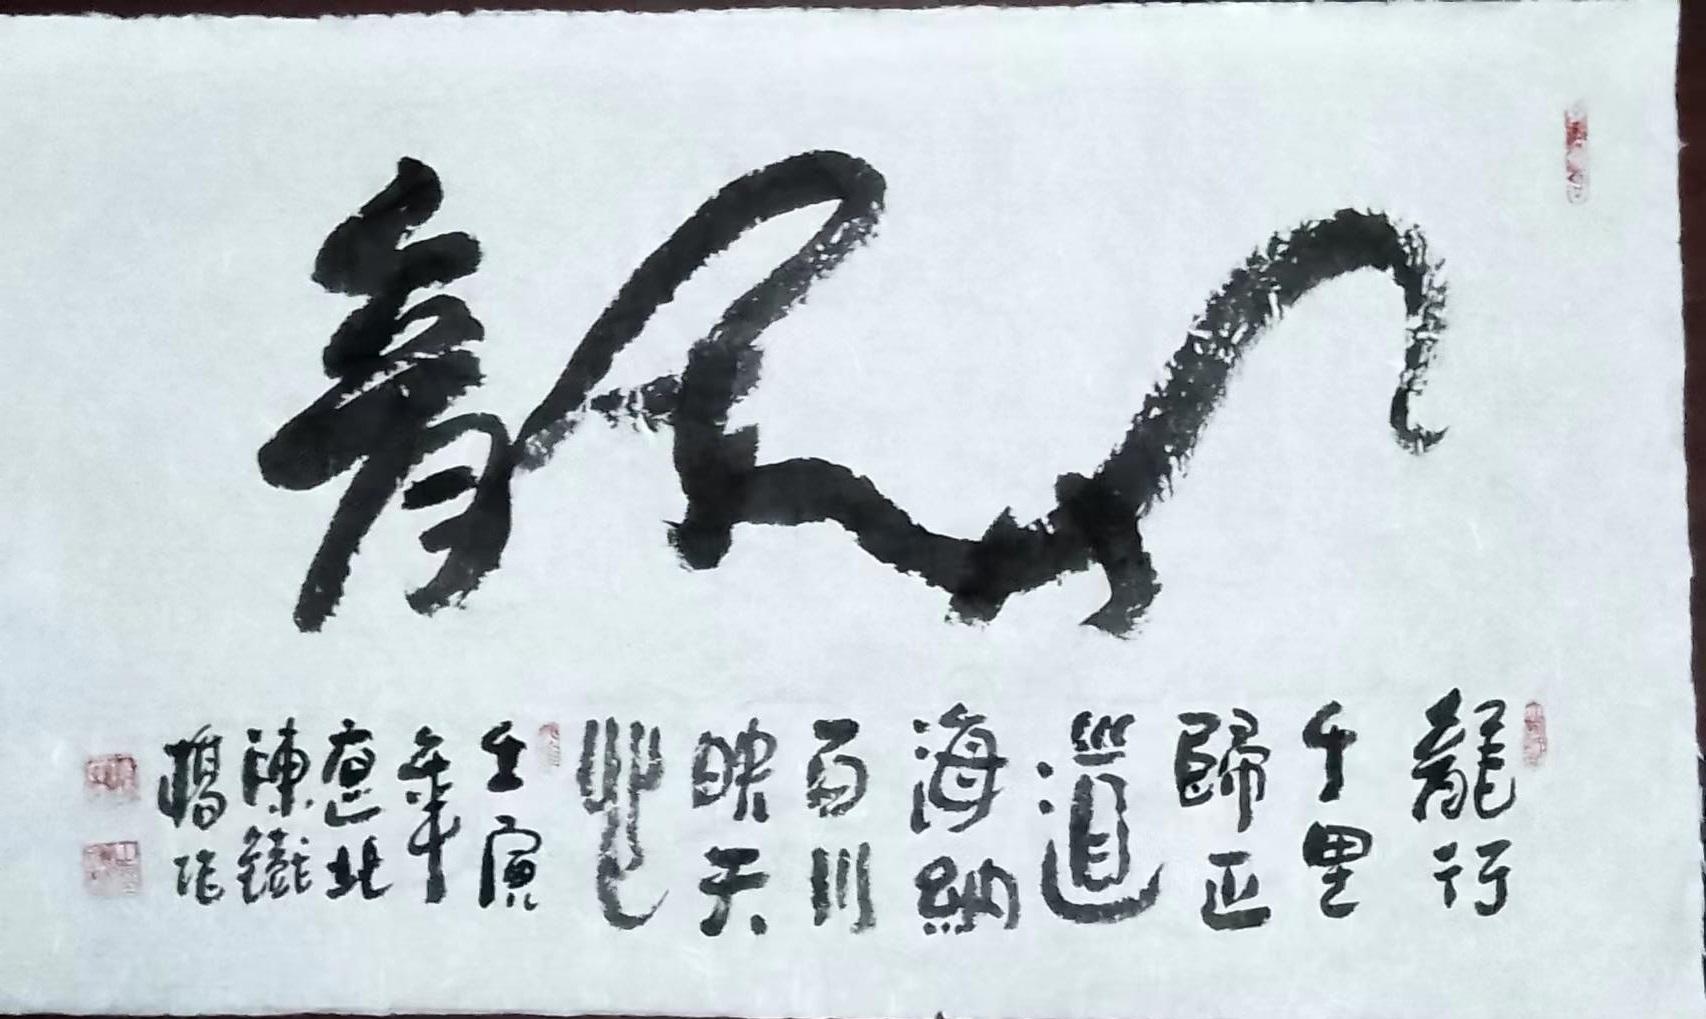 龍
龍行
千里
歸正
道
海納
百川
映天
壬寅
年
遼北
陳鐵
作